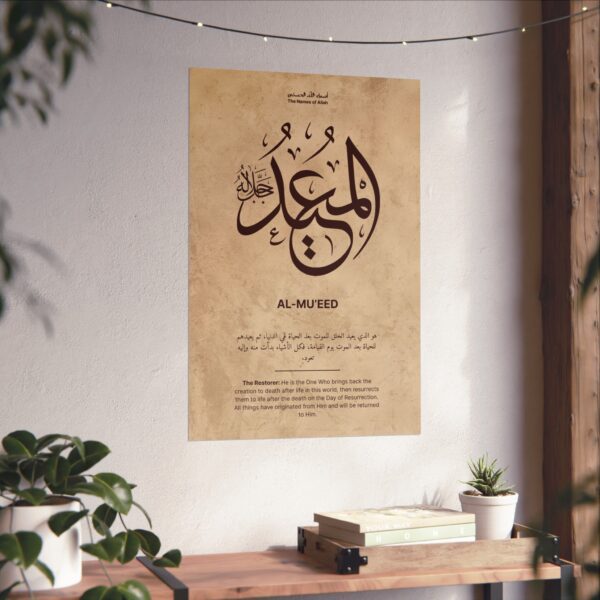 أسماء الله الحسنى
The Names of Allah
المُعِيدُ جَلَّ جَلَالُهُ
AL-MU'EED
هو الذي يعيد الخلق للموت بعد الحياة في الدنيا، ثم يعيدهم
للحياة بعد الموت يوم القيامة، فكل الأشياء بدأت منه وإليه
تعود.
The Restorer: He is the One Who brings back the
creation to death after life in this world, then resurrects
them to life after the death on the Day of Resurrection.
All things have originated from Him and will be returned
to Him.
HOME